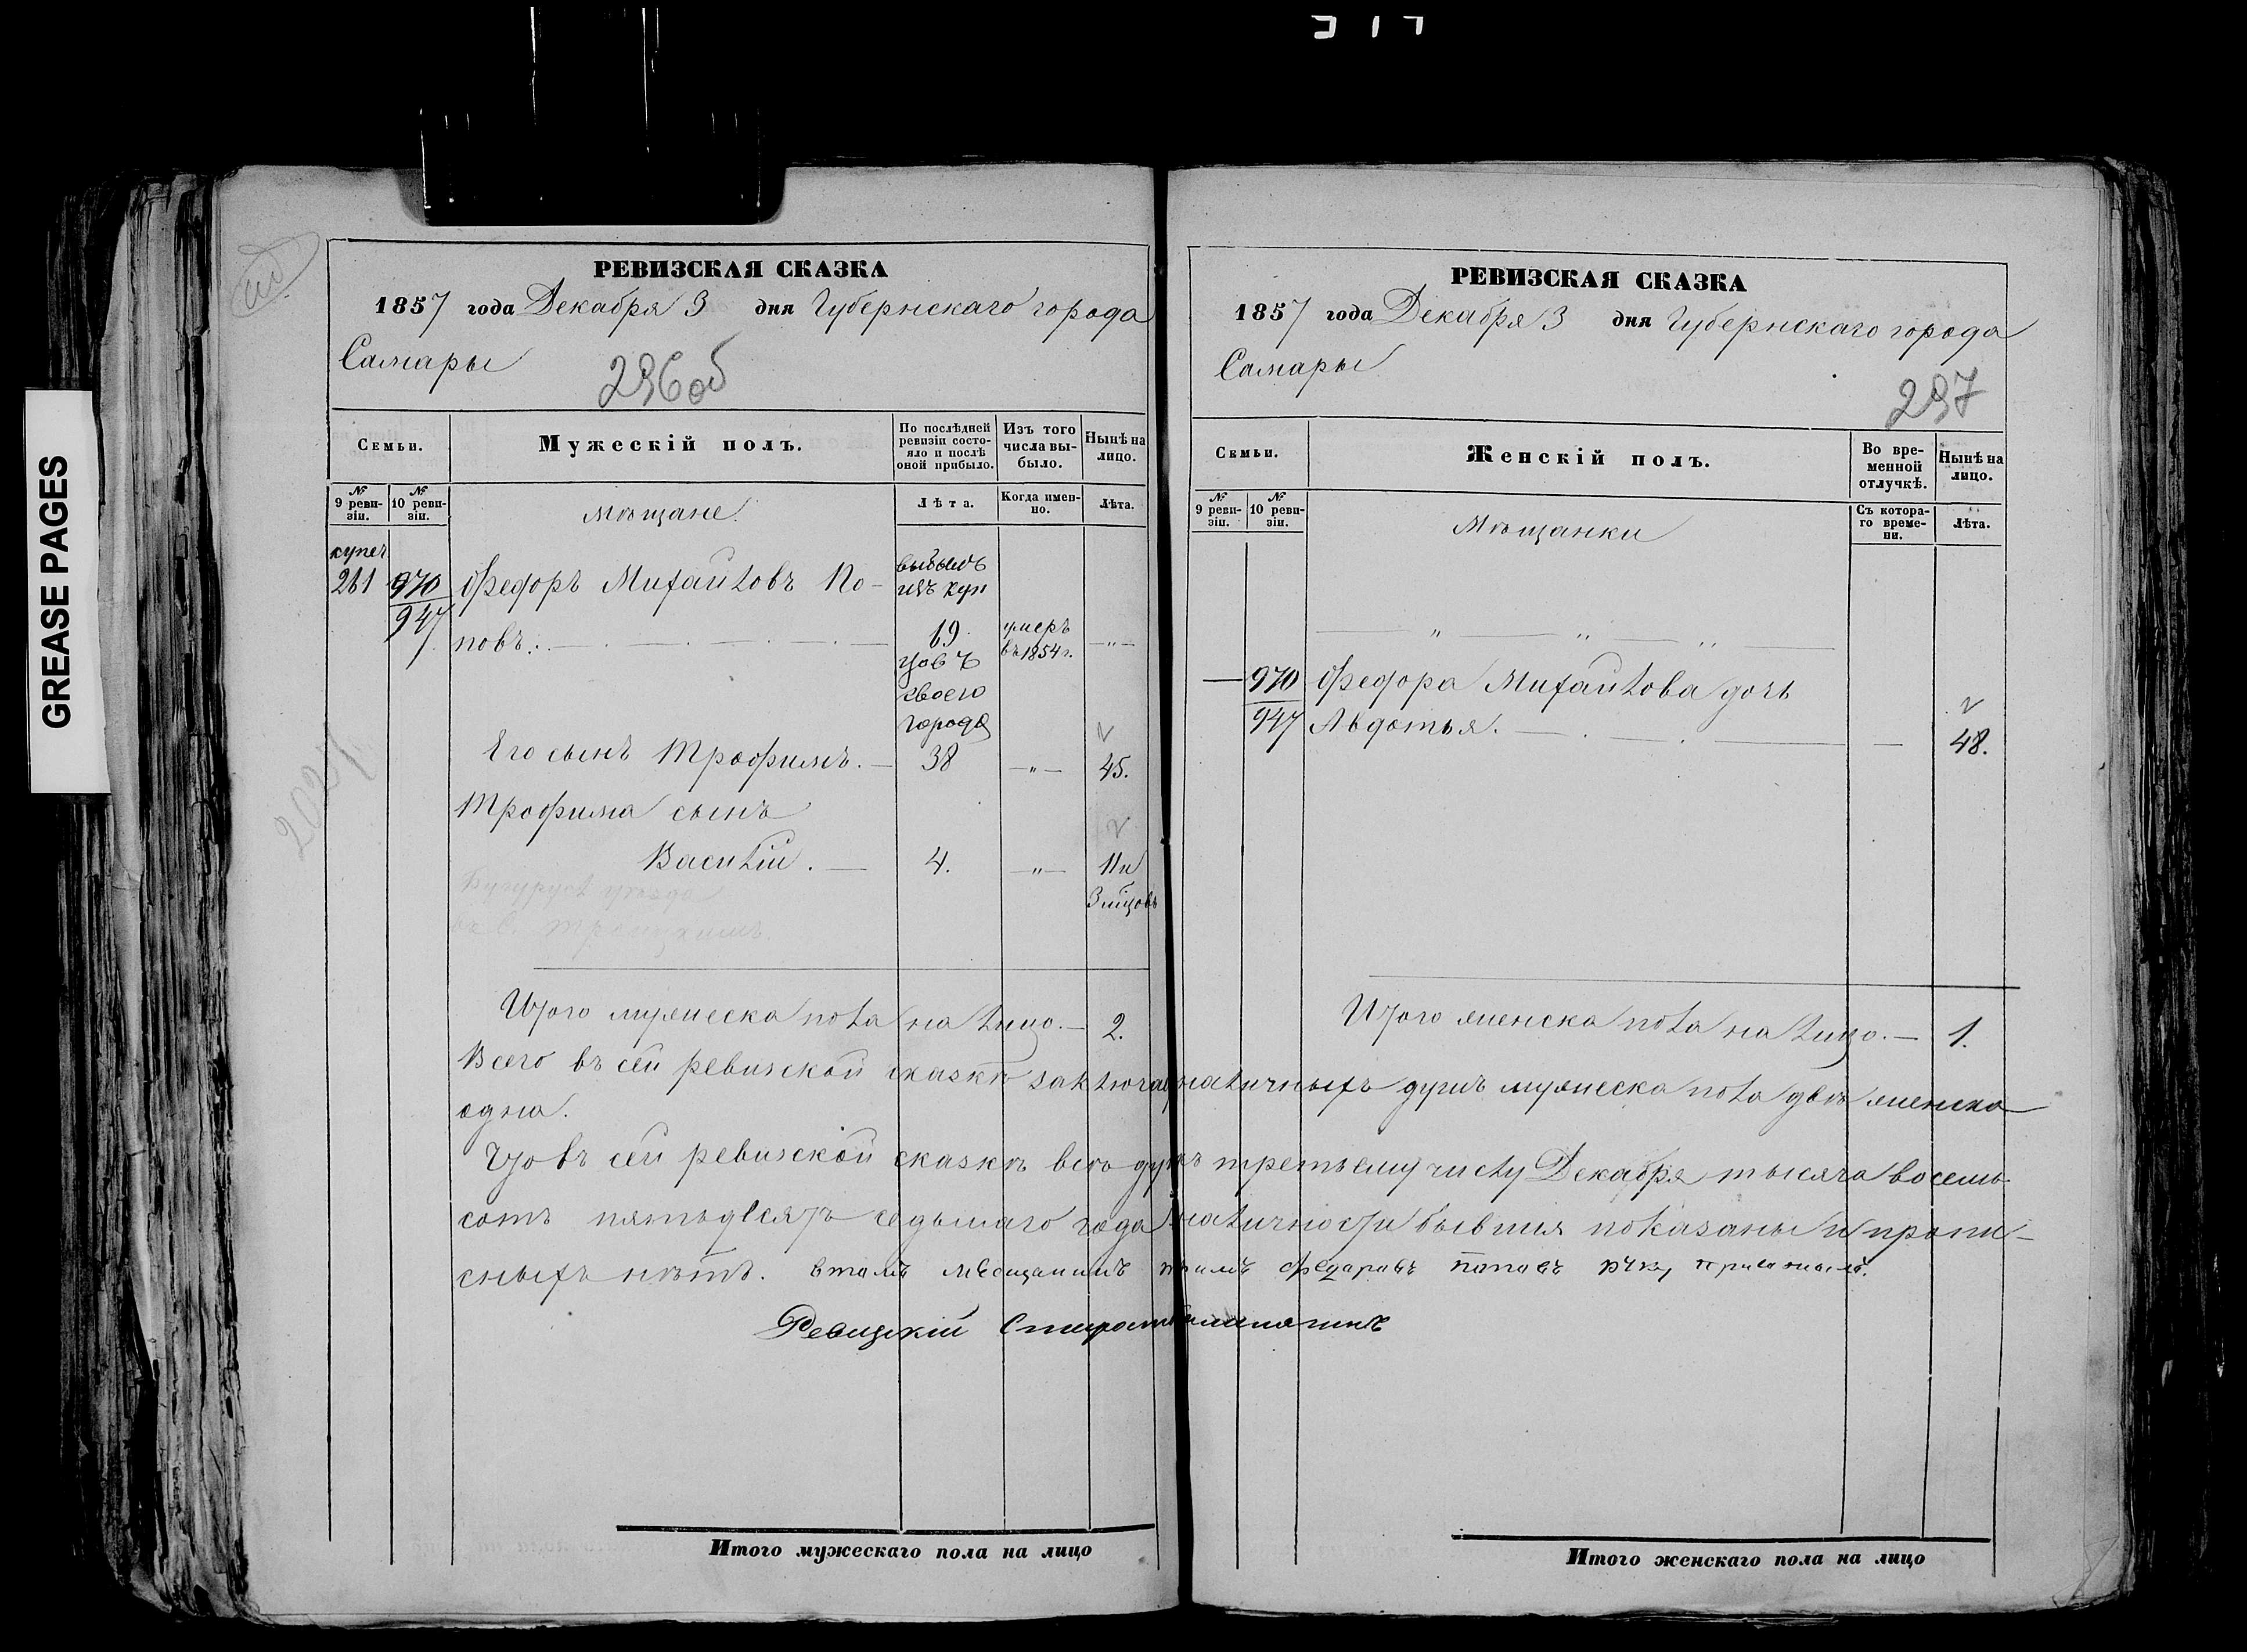 GREASE PAGES
РЕВИЗСКАЯ СКАЗКА
1857 года Декабря 3 дня Губернскаго города
Самары
296 об
Семьи.
Мужескій полъ.
По послѣдней ревизіи состояло и послѣ оной прибыло.
Изъ того числа выбыло.
Нынѣ на лицо.
№ 9 ревизіи.
№ 10 ревизіи.
Мѣщане.
Лѣта.
Когда именно.
Лѣта.
купеч
261
970
947
Федоръ Михайловъ По-
повъ.
изъ куп
69
цовъ
своего
города
умеръ
въ 1854 г.
Его сынъ Трофимъ. 38 45.
Трофима сынъ
Василій. 4. 11 и
3 мѣсяцовъ
Итого мужеска пола на лицо. 2.
РЕВИЗСКАЯ СКАЗКА
1857 года Декабря 3 дня Губернскаго города
Самары
297
Семьи.
Женскій полъ.
Во временной отлучкѣ.
Нынѣ на лицо.
№ 9 ревизіи.
№ 10 ревизіи.
Мѣщанки
Съ котораго времени.
Лѣта.
970
947
Федора Михайлова дочь
Авдотья. 48.
Итого женска пола на лицо. 1.
Всего въ сей ревизской сказкѣ наличныхъ душъ мужеска пола двѣ женска
одна.
Что въ сей ревизской сказкѣ всѣ къ третьему числу Декабря тысяча восемь
сотъ пятьдесятъ седьмаго года наличности бывшия показаны и пропи-
сныхъ нѣтъ. втомъ мѣсщанинъ
Ревизкій
Итого мужескаго пола на лицо
Итого женскаго пола на лицо